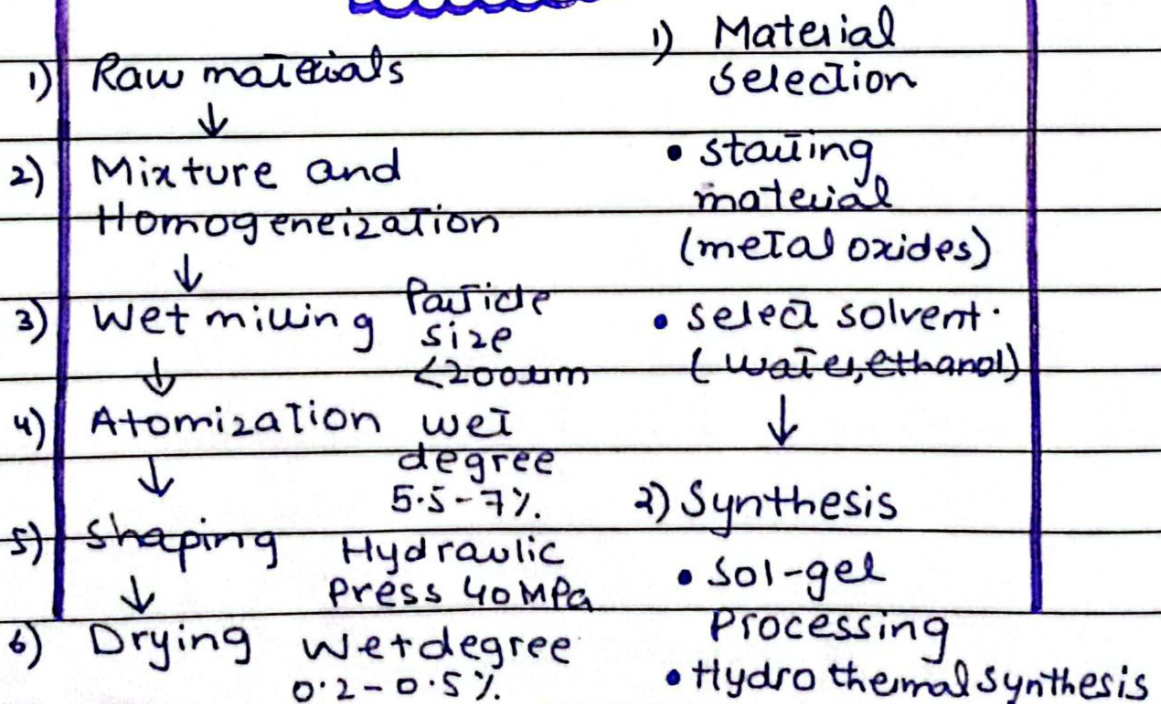 1) Raw materials
↓
2) Mixture and
Homogeneization
↓
3) Wet milling
Particle
size
<200um
↓
4) Atomization
wet
degree
5.5-7%.
↓
5) Shaping
Hydraulic
Press 40 MPa
↓
6) Drying
Wet degree
0.2-0.5%.
1) Material
Selection
• starting
material
(metal oxides)
• select solvent.
(water, ethanol)
↓
2) Synthesis
• Sol-gel
Processing
• Hydro thermal synthesis